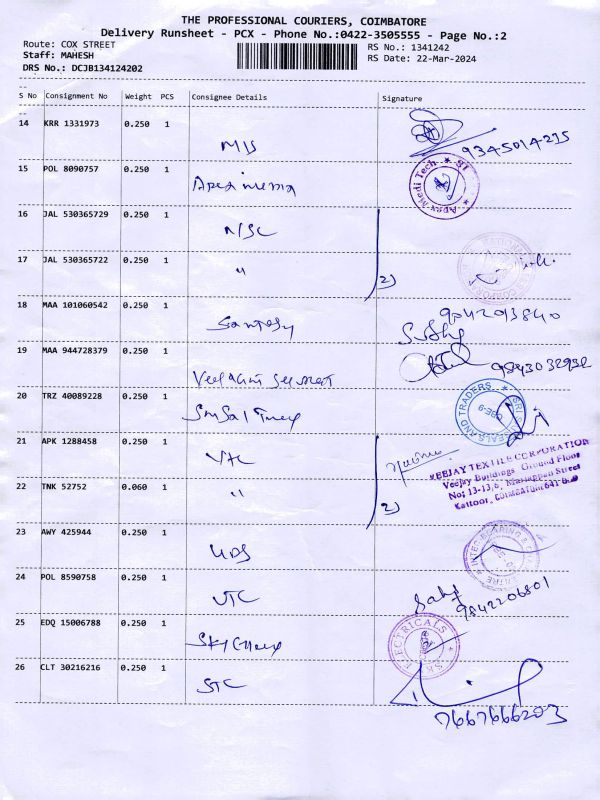 THE PROFESSIONAL COURIERS, COIMBATORE
Delivery Runsheet - PCX - Phone No.:0422-3505555 - Page No.:2
Route: COX STREET
RS No.: 1341242
Staff: MAHESH
RS Date: 22-Mar-2024
DRS No.: DCJB134124202
S No Consignment No Weight PCS Consignee Details Signature
14 KRR 1331973 0.250 1
M/S
9345014235
15 POL 8090757 0.250 1
Apex Medi Tech
16 JAL 530365729 0.250 1
N/SC
17 JAL 530365722 0.250 1
"
2)
18 MAA 101060542 0.250 1
Santosh
9042093840
19 MAA 944728379 0.250 1
9843032932
20 TRZ 40089228 0.250 1
SEALS AND TRADERS
CBE-9
21 APK 1288458 0.250 1
VTC
VEEJAY TEXTILE CORPORATION
Veejay Buildings Ground Floor
22 TNK 52752 0.060 1
"
2)
Kattoor, COIMBATORE-641
23 AWY 425944 0.250 1
UDS
24 POL 8590758 0.250 1
VTC
9842206801
25 EDQ 15006788 0.250 1
ELECTRICALS
26 CLT 30216216 0.250 1
STC
7667666203